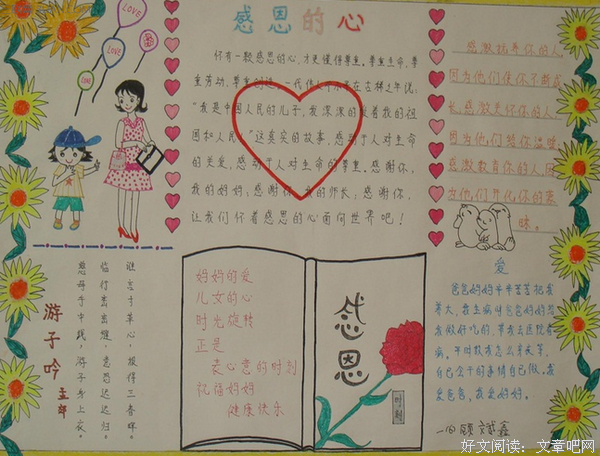 LOVE
LOVE
感恩的心
怀有一颗感恩的心,才更懂得尊重。尊重生命、尊
重劳动、尊重创造。一代伟人邓小平在古稀之年说:
“我是中国人民的儿子,我深深的爱着我的祖
国和人民。”这真实的故事,感动于人对生命
的关爱,感动于人对生命的尊重。感谢你,
我的妈妈;感谢你,我的师长;感谢你,
让我们怀着感恩的心面向世界吧!
感激你的人
因为他们使你不断成
长感激关怀你的人
因为他们给你温暖
感激教育你的人因
为他们开化你的蒙
昧
游子吟
孟郊
慈母手中线,游子身上衣。
临行密密缝,意恐迟迟归。
谁言寸草心,报得三春晖。
妈妈的爱
儿女的心
时光旋转
正是
表心意的时刻
祝福妈妈
健康快乐
感恩
时刻
爱
爸爸妈妈辛辛苦苦把我
养大,我生病时爸爸妈妈给
我做好吃的,带我去医院看
病,平时教我怎么
自己会干的事情自己做。我
爱爸爸,我爱妈妈。
好文阅读:文章吧网